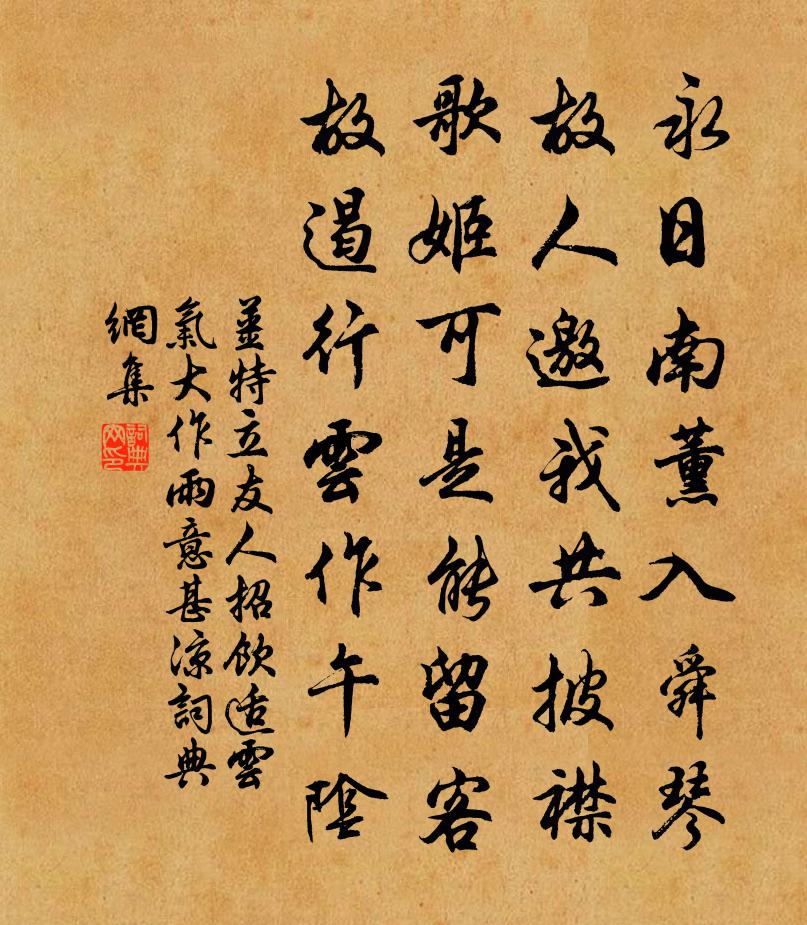 永日南薰入舜琴
故人邀我共披襟
歌姬可是能留客
故遏行雲作午陰
姜特立友人招飲适雲
氣大作雨意甚涼詞典
網集
詞典
网印